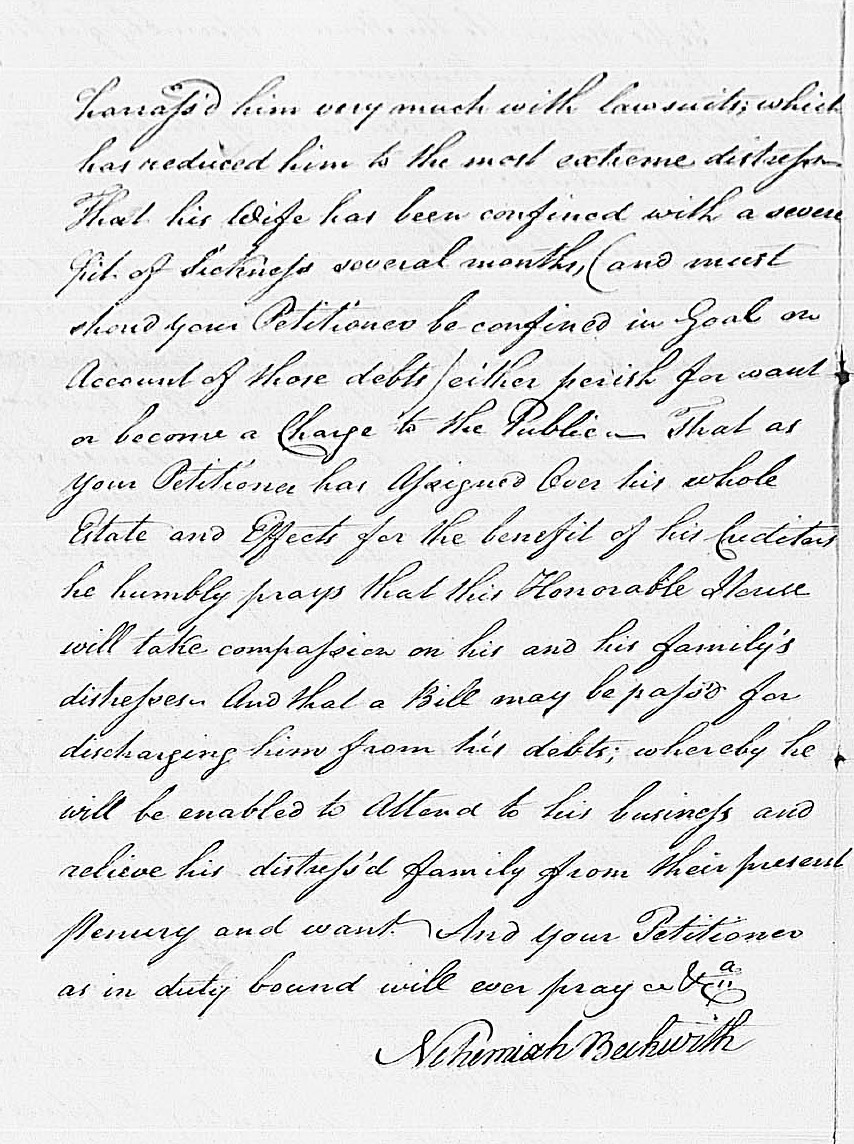 harrass'd him very much with lawsuits; which
has reduced him to the most extreme distress
That his Wife has been confined with a severe
fit of Sickness several months, (and must
shoud your Petitioner be confined in Goal on
Account of those debts) either perish for want
or become a Charge to the Public — That as
your Petitioner has Assigned Over his whole
Estate and Effects for the benefit of his Creditors
he humbly prays that this Honorable House
will take compassion on his and his family's
distresses And that a Bill may be pass'd for
discharging him from his debts; whereby he
will be enabled to Attend to his business and
relieve his distress'd family from their present
penury and want. And your Petitioner
as in duty bound will ever pray &ca
Nehemiah Beckwith